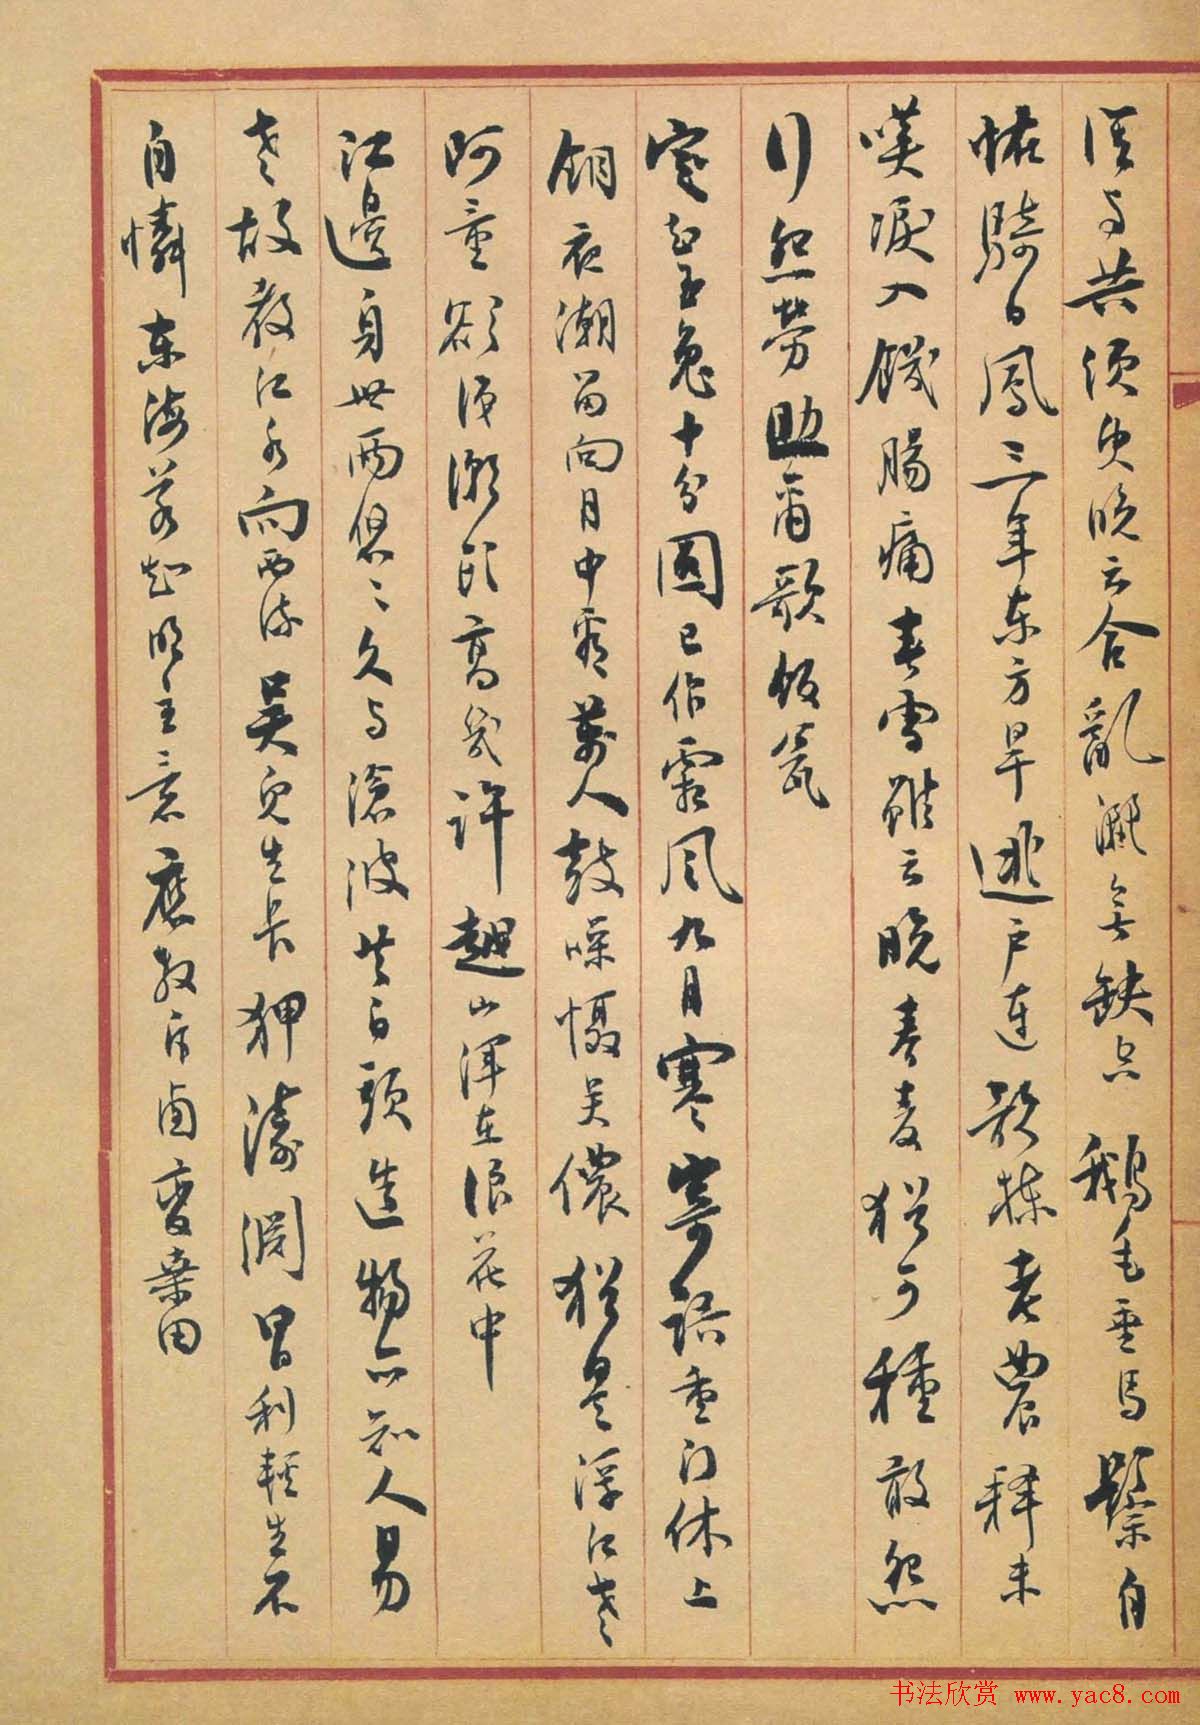 誰與共須臾晚云合亂灑無缺空鵝毛垂馬鬃自
怪騎白鳳三年東方旱逃戶連欹棟老農釋耒
嘆淚入饑腸痛春雪雖云晚春麥猶可種敢怨
行怨勞助爾歌飯瓮
定知玉兔十分圓已作霜風九月寒寄語重門休上
鑰夜潮留向月中看萬人鼓噪懾吳儂猶是浮江老
阿童欲識潮頭高幾許越山渾在浪花中
江邊身世兩悠〻久與滄波共白頭造物亦知人易
老故教江水向西流吳兒生長狎濤淵冒利輕生不
自憐東海若知明主意應教斥鹵變桑田
书法欣赏 www.yac8.com